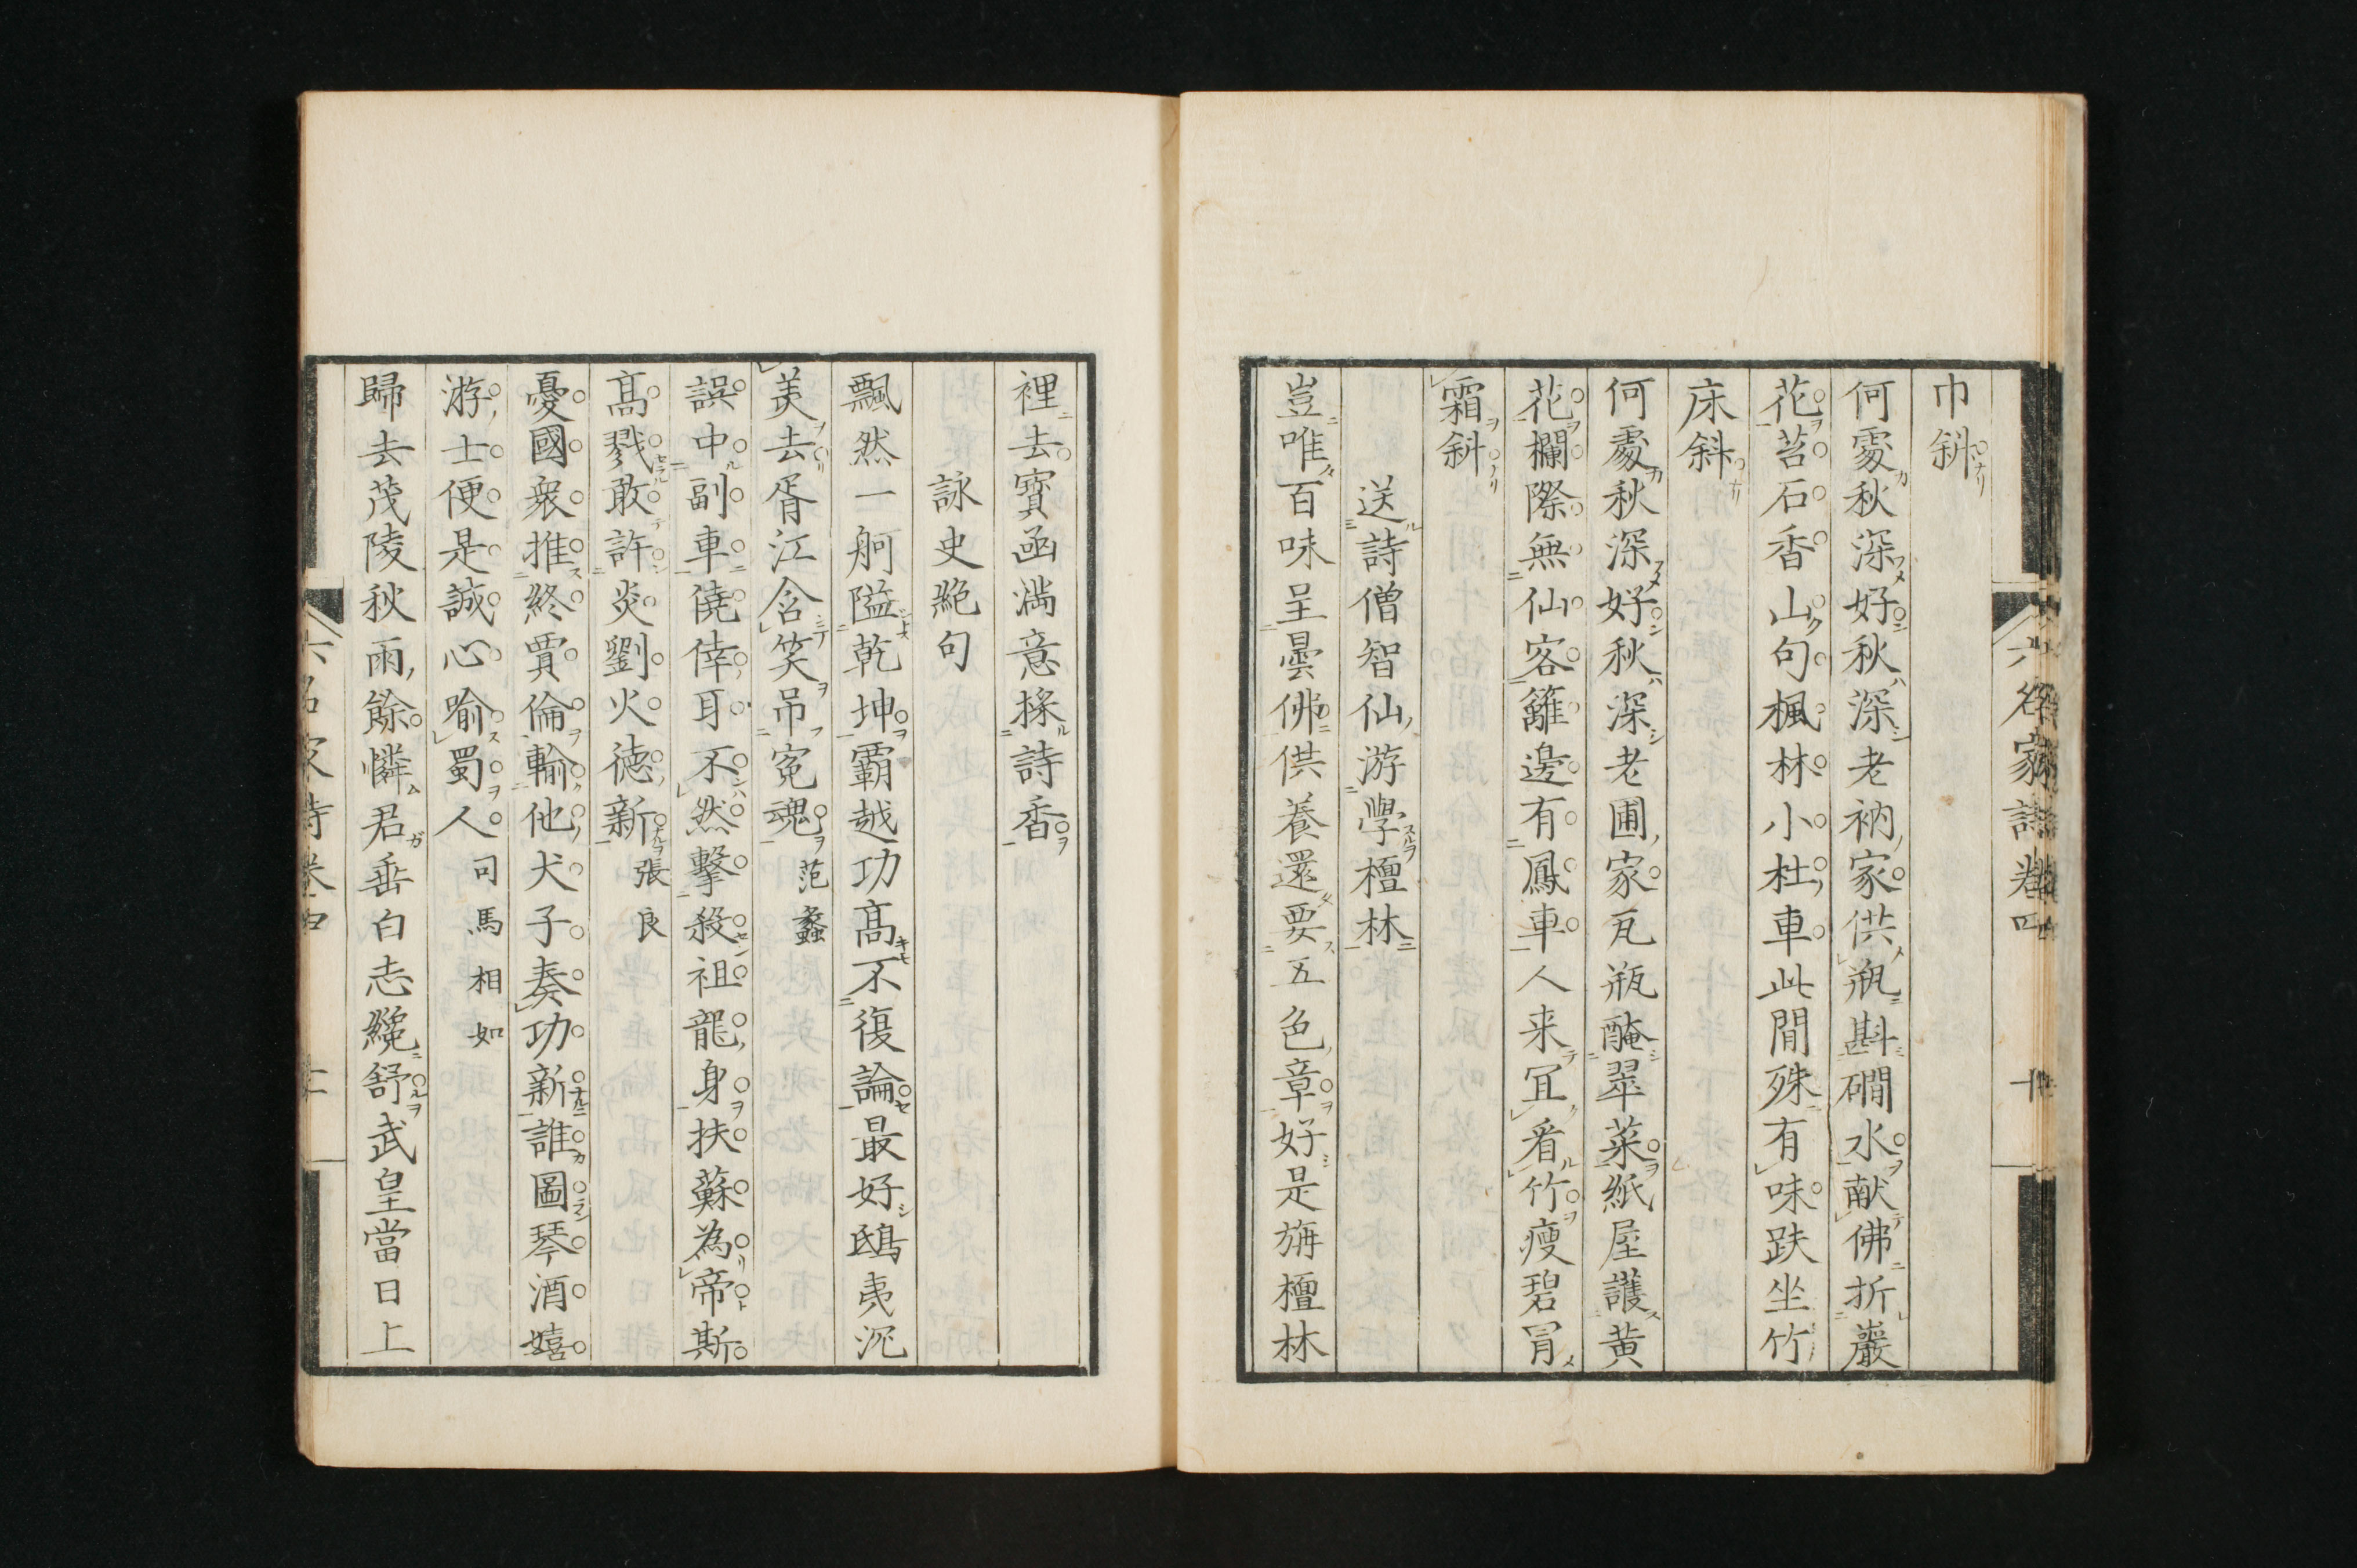 六名家詩卷四
巾斜
何處秋深好秋深老衲家供瓶斟磵水献佛折巖
花苔石香山句楓林小杜車此間殊有味趺坐竹
床斜
何處秋深好秋深老圃家瓦瓶醃翠菜紙屋護黄
花欄際無仙客籬邊有鳳車人来冝看竹瘦碧冐
霜斜
送詩僧智仙游學檀林
豈唯百味呈曇佛供養還要五色章好是旃檀林
裡去寶函満意採詩香
詠史絶句
飄然一舸隘乾坤覇越功髙不復論最好鴟夷沉
美去胥江含笑吊寃魂 范蠡
誤中副車僥倖耳不然擊殺祖龍身扶蘇為帝斯
髙戮敢許炎劉火徳新 張良
憂國衆推終賈倫輸他犬子奏功新誰圖琴酒嬉
游士便是誠心喻蜀人 司馬相如
歸去茂陵秋雨餘憐君垂白志纔舒武皇當日上
六名家詩卷四